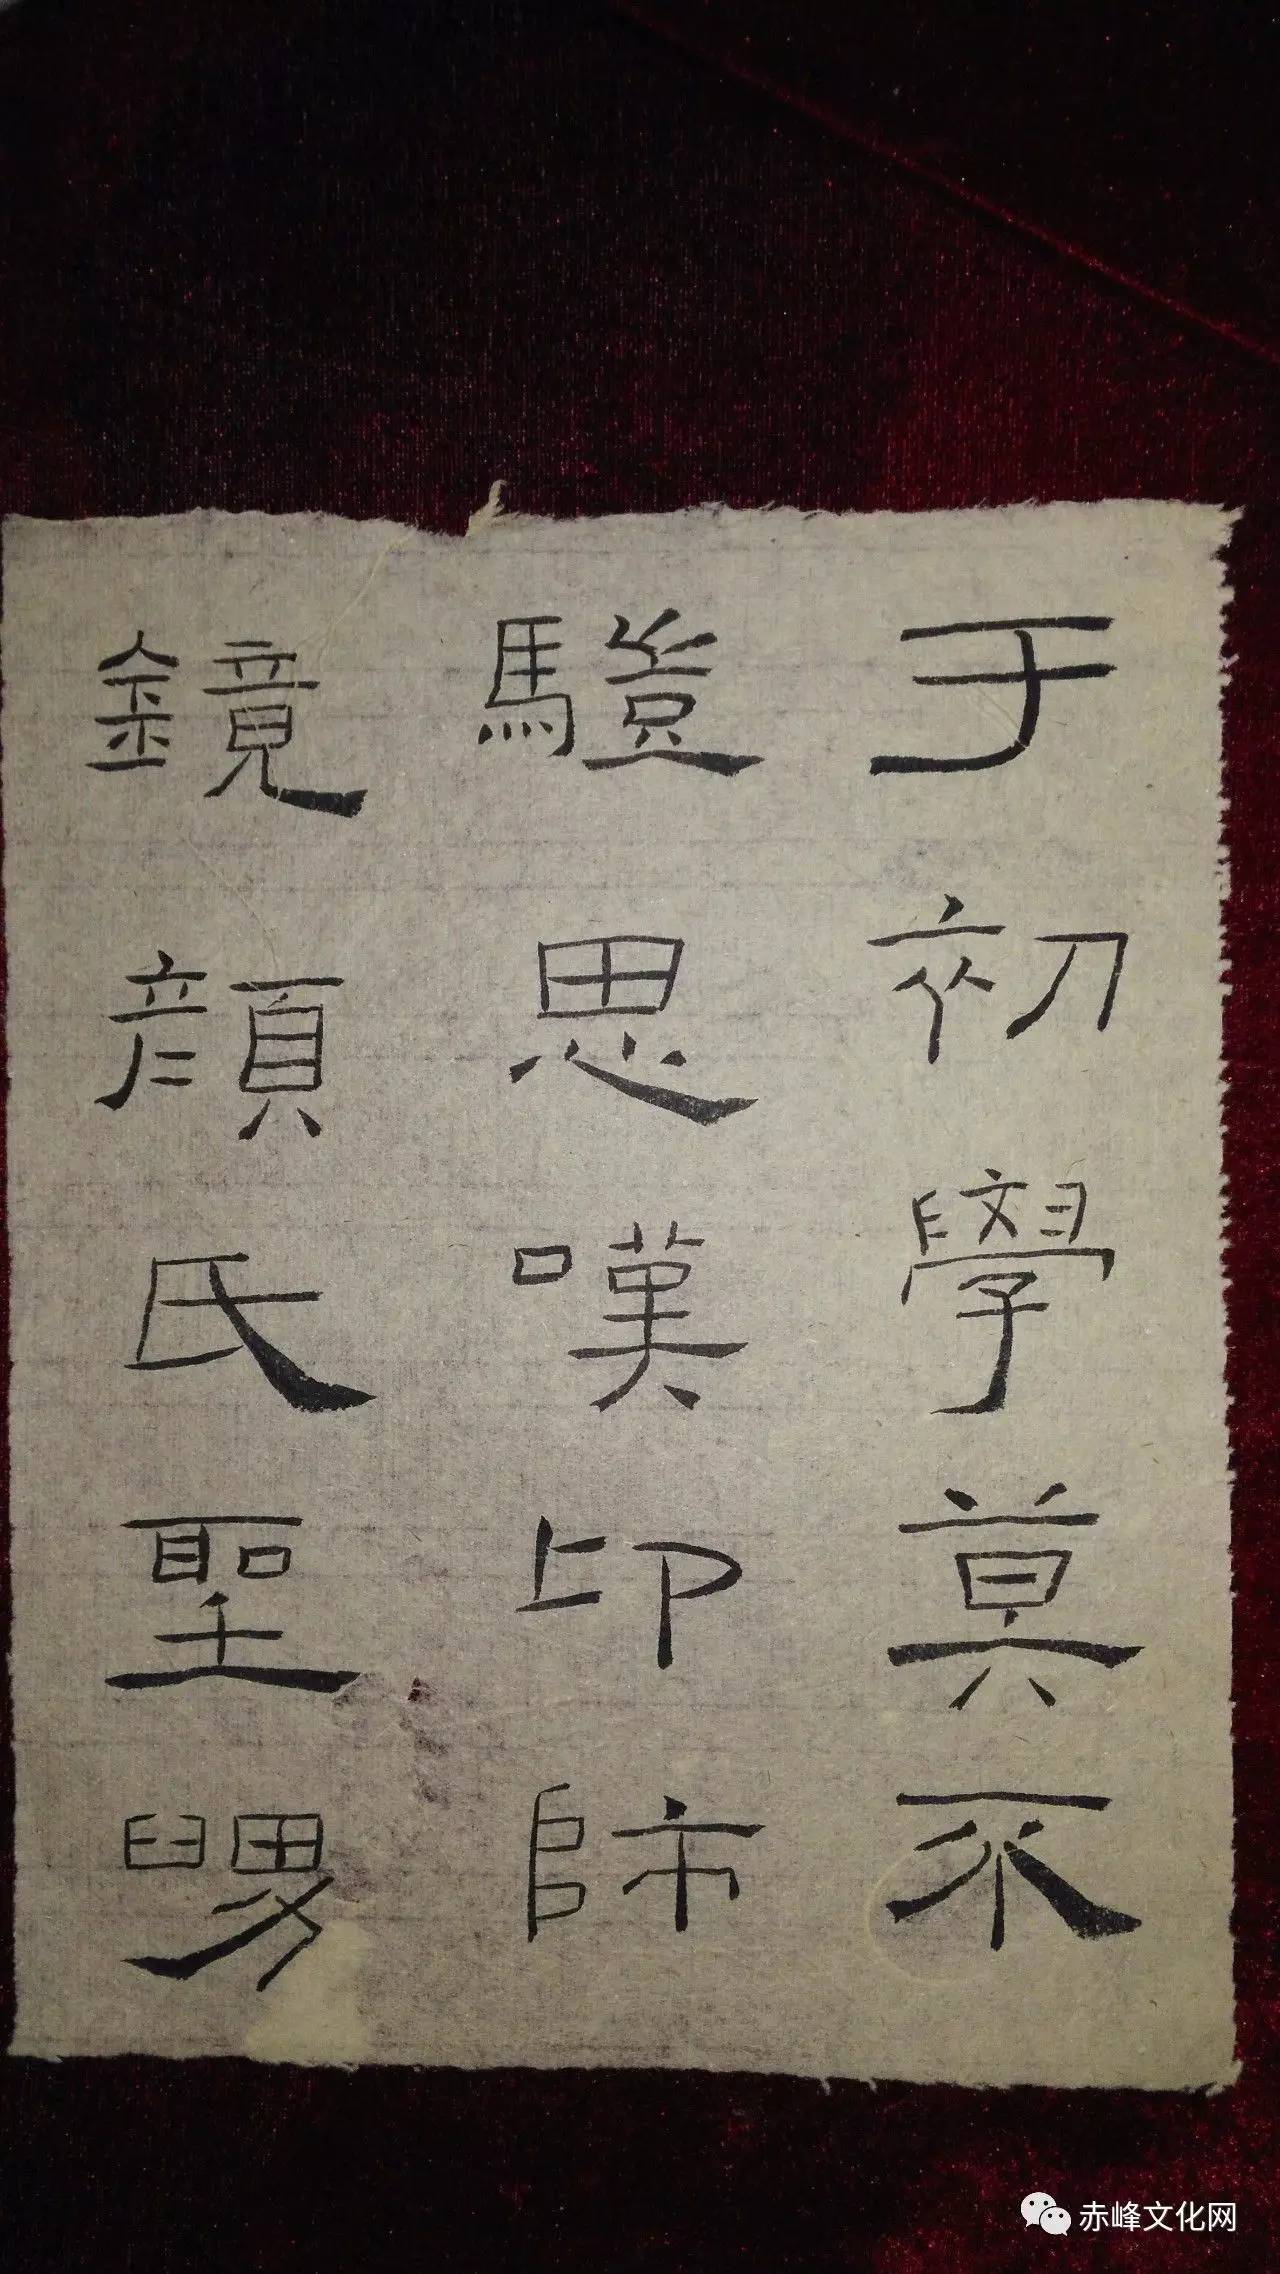 于初學莫不
驥思嘆卬師
鏡顏氏聖舅
赤峰文化网